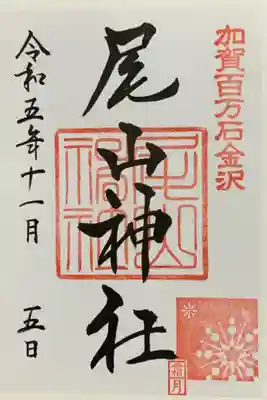 加賀百万石金沢
尾山神社
尾山神社
令和五年十一月 五日
霜月